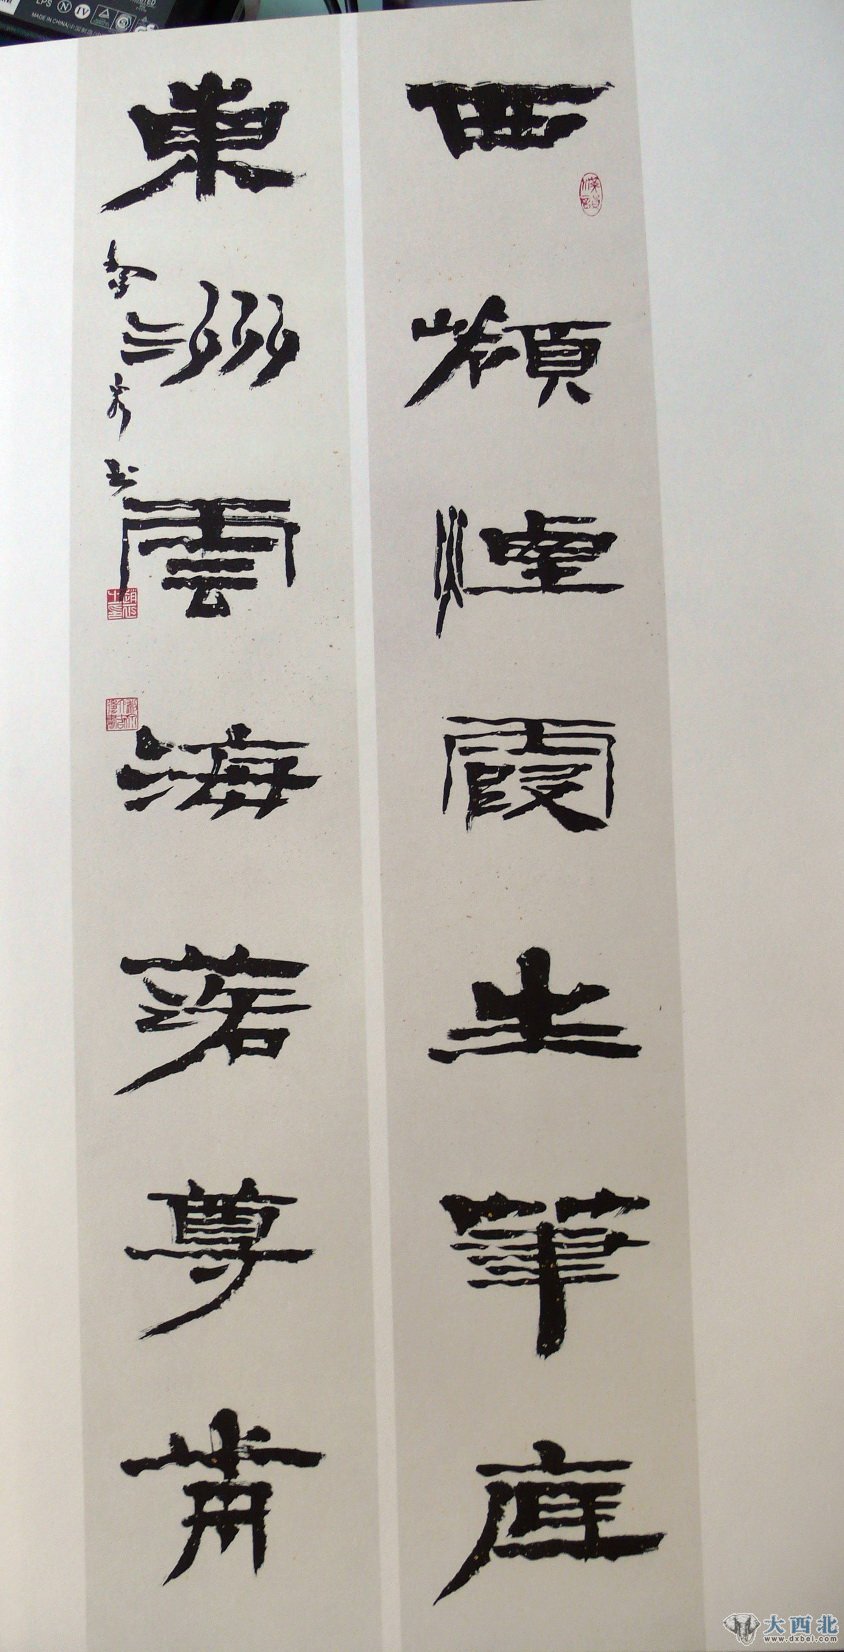 西嶺煙霞生筆底
東洲雲海落尊前
LPS
MADE IN CHINA
大西北
www.dxbei.com